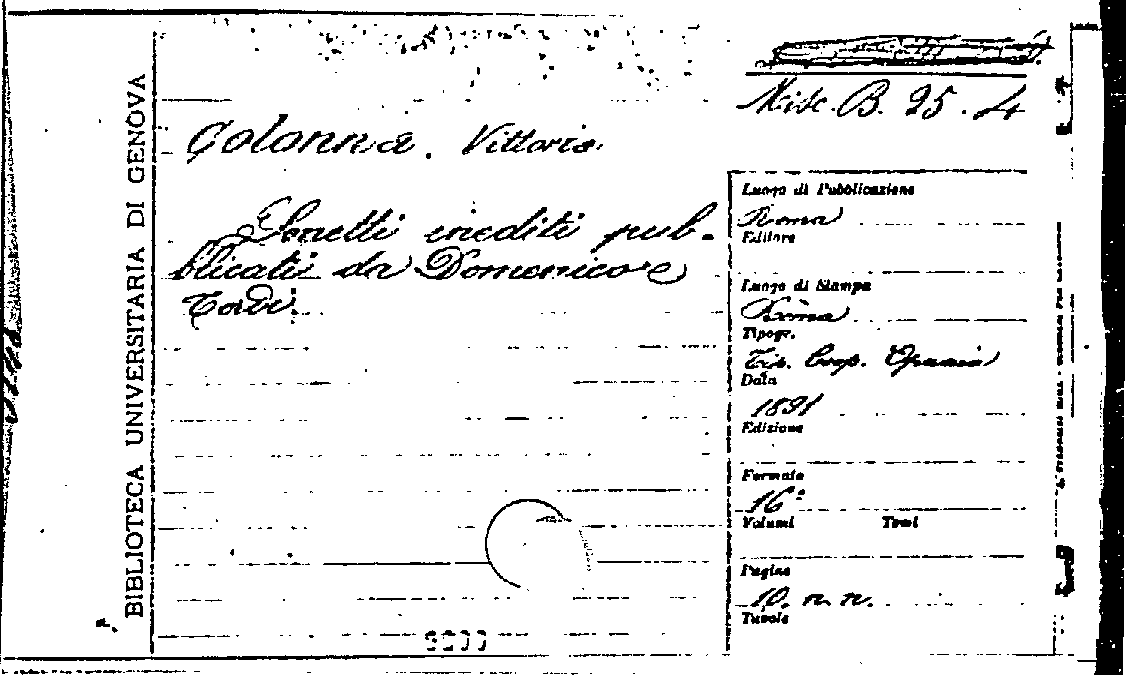 BIBLIOTECA UNIVERSITARIA DI GENOVA
Misc. B. 25. 4
Colonna. Vittoria.
Sonetti inediti pub-
blicati da Domenico
Tordi.
Luogo di Pubblicazione
Roma
Editore
Luogo di Stampa
Roma
Tipogr.
Tip. Coop. Operaia
Data
1891
Edizione
Formato
16°
Volumi Tomi
Pagine
10. n. n.
Tavole